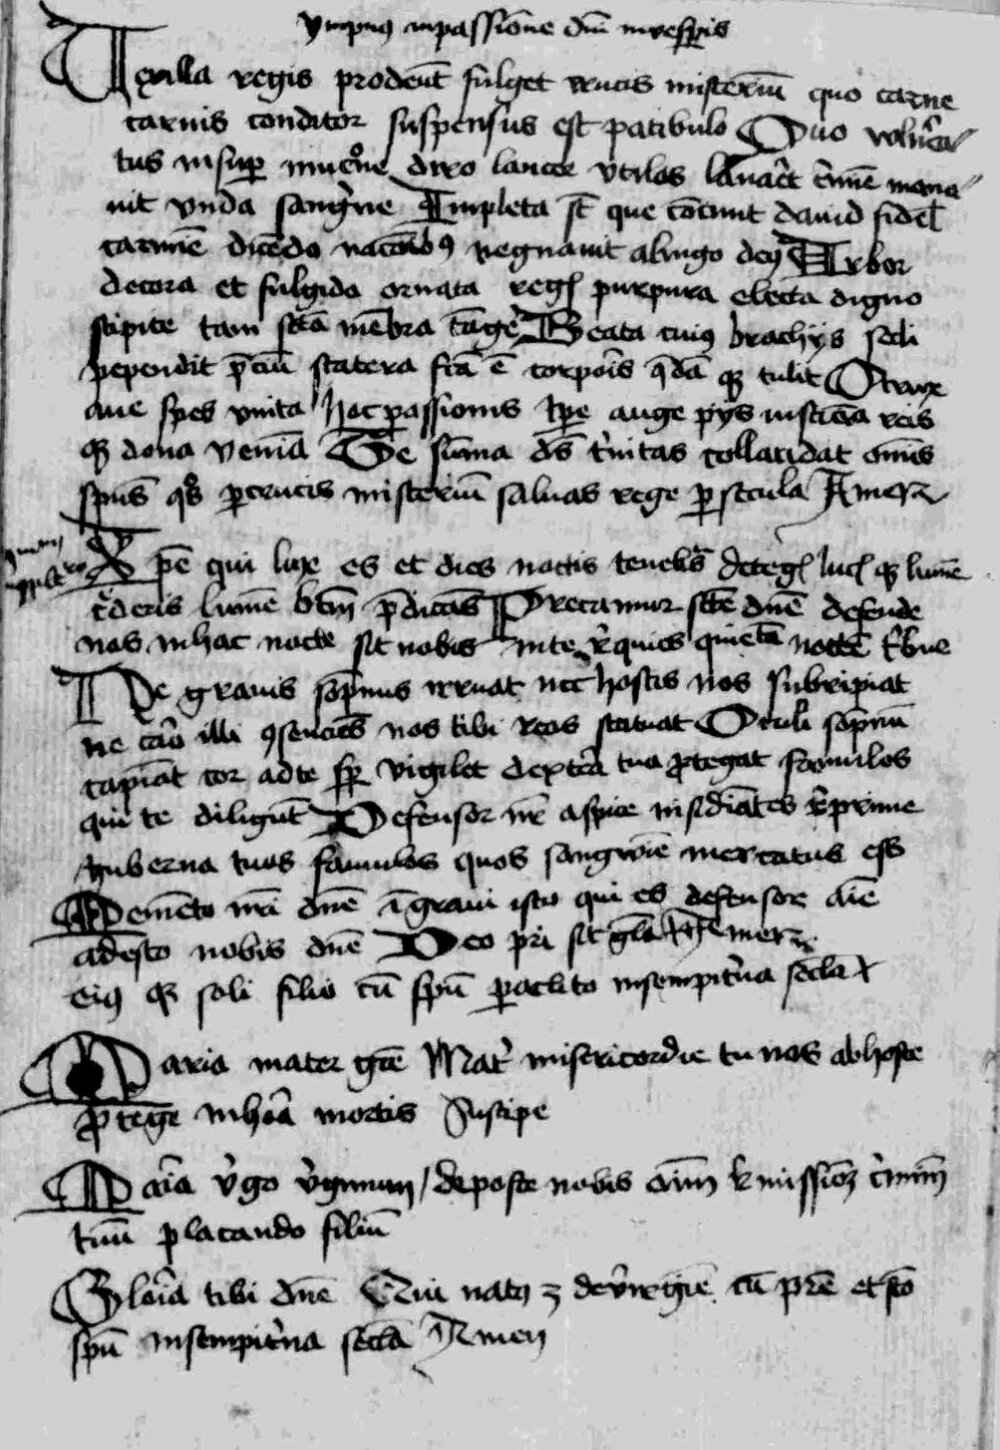 Ympnus in passione dni in vesperis
Vexilla regis prodeut fulget crucis misteriu quo carne
carnis conditor suspensus est patibulo Quo volnera
tus insup mucrone diro lancee vt nos lavaret crimine mana
uit vnda sangwine Impleta st que cocinit dauid fidel
carmine dicedo nacionibus regnauit a ligno deus Arbor
decora et fulgida ornata regis purpura electa digno
stipite tam scta mebra tagere Beata cuius brachijs secli
pependit preciu statera fca e corporis qda que tulit O crux
aue spes vnica hoc passionis tpe auge pijs iusticia reis
que dona venia Te suma ds trinitas collaudat omnis
spus quos per crucis misteriu saluas rege per secula Amen
Xpe qui lux es et dies noctis tenebras detegis lucis que lume
crederis lume btm predicas Precamur scte dne defende
nos in hac nocte sit nobis in te requies quieta nocte tribue
Ne grauis sopnus irruat nec hostis nos subripiat
ne caro illi consencies nos tibi reos statuat Oculi sopnu
capiat cor ad te semper vigilet dextera tua protegat famulos
qui te diligut Defensor nr aspice insidiates reprime
guberna tuos famulos quos sangwine mercatus es
Memeto nri dne i graui isto qui es defensor aie
adesto nobis dne Deo pri sit gla Amen
eius que soli filio cu spu paraclito in sempiterna secla
Maria mater gre Mater misericordie tu nos ab hoste
protege in hora mortis suscipe
Maria virgo virginum / deposce nobis omniu remissione criminu
tuu placando filiu
Gloria tibi dne Qui natus es de virgine cu pre et sco
spu in sempiterna secla Amen